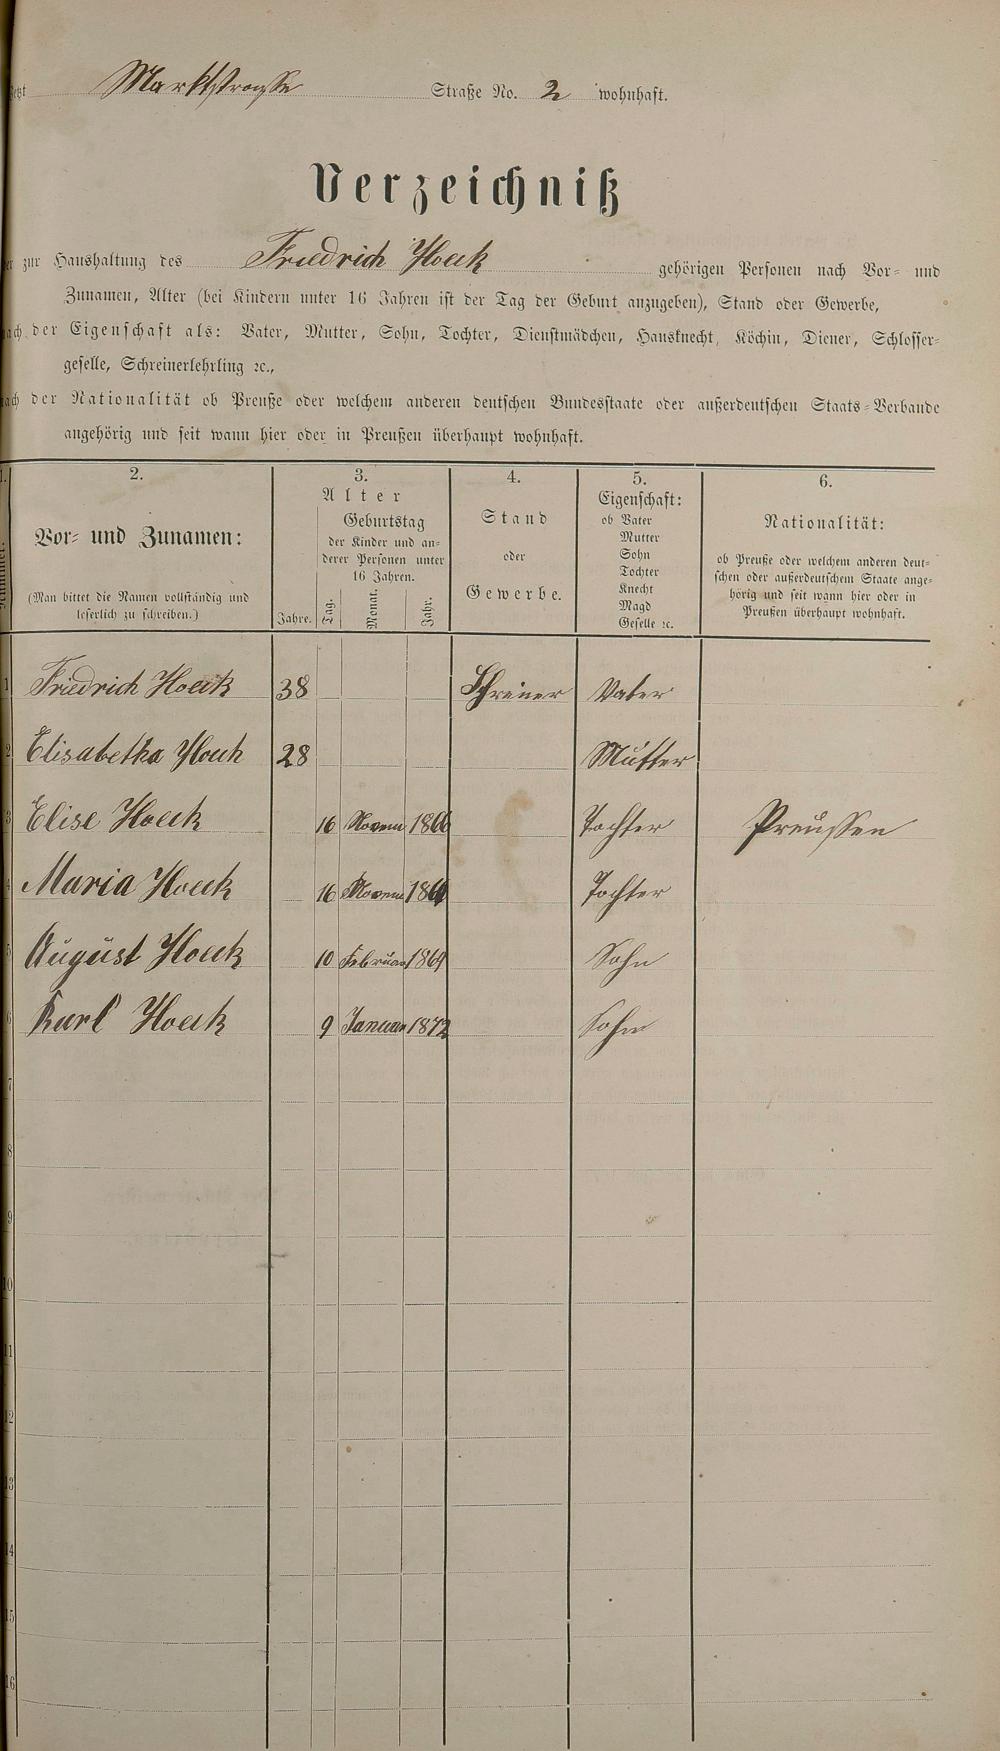 Jetzt Marktstrasse Straße No. 2 wohnhaft.
Verzeichniß
der zur Haushaltung des Friedrich Hoeck gehörigen Personen nach Vor- und
Zunamen, Alter (bei Kindern unter 16 Jahren ist der Tag der Geburt anzugeben), Stand oder Gewerbe,
nach der Eigenschaft als: Vater, Mutter, Sohn, Tochter, Dienstmädchen, Hausknecht, Köchin, Diener, Schlosser-
geselle, Schreinerlehrling ꝛc.,
nach der Nationalität ob Preuße oder welchem anderen deutschen Bundesstaate oder außerdeutschen Staats-Verbande
angehörig und seit wann hier oder in Preußen überhaupt wohnhaft.
1. 2. 3. 4. 5. 6.
Nummer.
Vor- und Zunamen:
(Man bittet die Namen vollständig und
leserlich zu schreiben.)
Alter
Jahre.
Geburtstag
der Kinder und an-
derer Personen unter
16 Jahren.
Tag. Monat. Jahr.
Stand
oder
Gewerbe.
Eigenschaft:
ob Vater
Mutter
Sohn
Tochter
Knecht
Magd
Geselle ꝛc.
Nationalität:
ob Preuße oder welchem anderen deut-
schen oder außerdeutschem Staate ange-
hörig und seit wann hier oder in
Preußen überhaupt wohnhaft.
1 Friedrich Hoeck 38 Schreiner Vater
2 Elisabetha Hoeck 28 Mutter
3 Elise Hoeck 16 Novem 1866 Tochter Preussen
4 Maria Hoeck 16 Novem Tochter
5 August Hoeck 10 Februar 1869 Sohn
6 Karl Hoeck 9 Januar 1872 Sohn
7
8
9
10
11
12
13
14
15
16